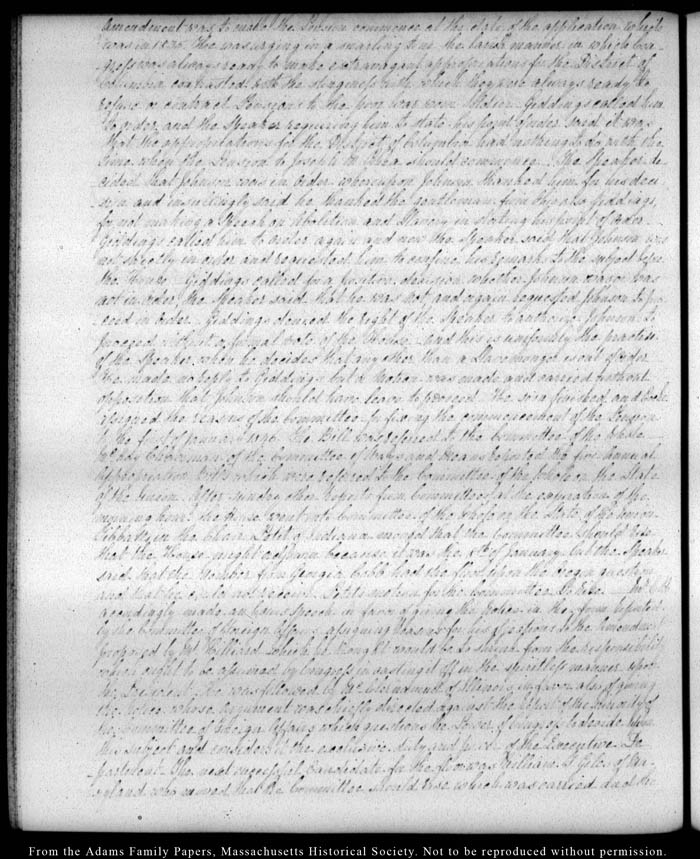 amendment was to make the Pension commence at the date of the application which
was in 1836. He was urging in a snarling tone the lavish manner in which Con-
gress was always ready to make extravagant appropriations for the District of
Columbia contrasted with the stinginess with which they were always ready to
refuse or contract Pensions to the war worn Soldier. Giddings called him
to order, and the Speaker requiring him to state his point of order said it was
that the appropriations for the District of Columbia had nothing to do with the
time when the Pension to Joseph should commence. The Speaker de-
cided that Johnson was in order whereupon Johnson thanked him for his deci-
sion and insultingly said he thanked the gentleman from Ohio also Giddings,
for not making a Speech on Abolition and Slavery in stating his point of order.
Giddings called him to order again and now the Speaker said that Johnson was
not strictly in order and requested him to confine his remarks to the subject before
the House. Giddings called for a positive decision whether Johnson was or was
not in order, the Speaker said that he was not and again requested Johnson to pro-
ceed in order. Giddings denied the right of the Speaker to authorise Johnson to
proceed without a formal vote of the House. and this is uniformly the practise
of the Speaker when he decides that any other than a Slavemonger is out of order.
He made no reply to Giddings but a Motion was made and carried without
opposition that Johnson should have leave to proceed. He soon finished, and
assigned the reasons of the Committee for fixing the commencement of the Pension
to the first of January 1846. The Bill was referred to the Committee of the whole
Chairman of the Committee of Ways and Means reported the five annual
appropriation bills which were referred to the Committee of the whole on the State
of the Union. After sundry other reports from Committees at the expiration of the
morning hour the House went into Committee of the whole on the State of the Union
Tibbatts in the Chair. Pettit of Indiana moved that the Committee should rise
that the House might adjourn because it was the 8th of January but the Speaker
said that the Member from Georgia Cobb had the floor upon the Oregon question
and that he could not receive Pettit's motion for the Committee to rise. Mr Cobb
accordingly made an hours speech in favour of giving the notice in the form reported
by the Committee of Foreign Affairs, assigning reasons for his objections to the Amendment
proposed by Mr Hilliard which he thought would be to shrink from the responsibility
which ought to be assumed by Congress in casting it off in the spiritless manner upon
the President. He was followed by McClernand of Illinois, in favour also of giving
the notice whose argument was chiefly directed against the report of the minority of
the Committee of Foreign Affairs which questions the Power of Congress to decide upon
this subject and considers it the exclusive duty and power of the Executive De-
partment. The next successful Candidate for the floor was William F. Giles of Ma-
ryland who moved that the Committee should rise which was carried and the
From the Adams Family Papers, Massachusetts Historical Society. Not to be reproduced without permission.